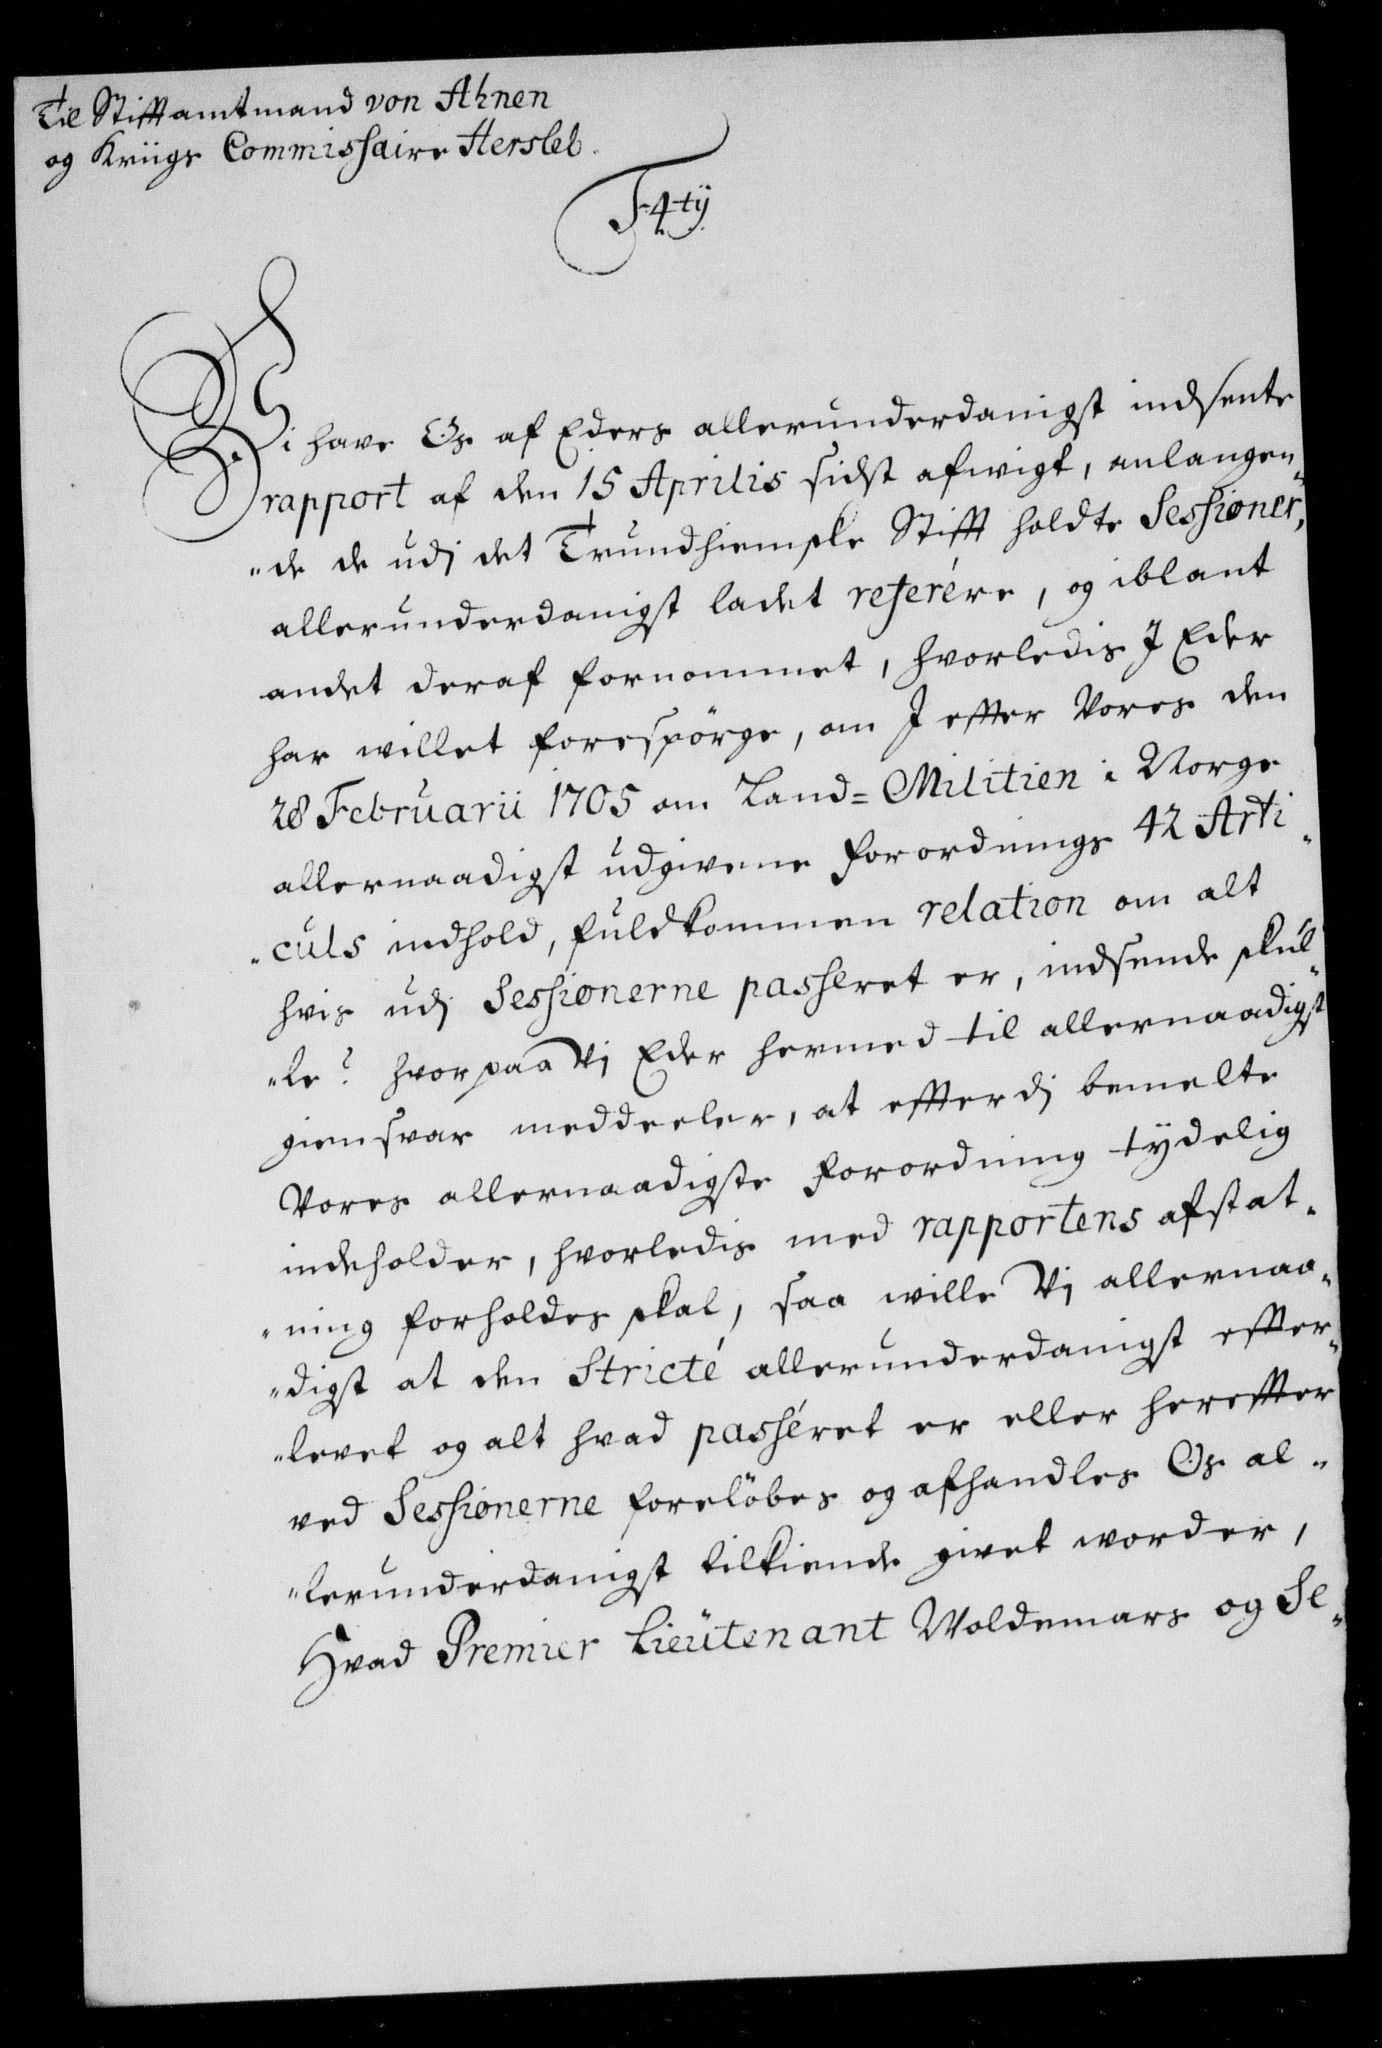 Til Stifftamtmand von Ahnen
og Kriigs Commissaire Hersleb.
F4tÿ
Vi have Os af Eders allerunderdanigst indsente
rapport af den 15 Aprilis sidst afwigt, anlangen„
„de de udj det Trundhiemske Stifft holdte Sessioner,
allerunderdanigst ladet referére, og iblant
andet deraf fornommet, hvorledis I Eder
har willet forespörge, om I effter Vores den
28 Februarii 1705 om Land=Militien i Norge
allernaadigst udgivene Forordnings 42 Arti„
„culs indhold, fuldkommen relation om alt
hvis udj Sessionerne passeret er, indsende skul„
„le? hvorpaa Vi Eder hermed til allernaadigst
giensvar meddeeler, at effterdj bemelte
Vores allernaadigste Forordning tydelig
indeholder, hvorledis med rapportens afstat„
„ning forholdes skal, saa wille Vi allernaa„
„digst at den Stricté allerunderdanigst effter„
„levet og alt hvad passéret er eller hereffter
ved Sessionerne foreløbes og afhandles Os al„
„lerunderdanigst tilkiende givet worder,
Hvad Premier Lieutenant Woldemars og Se„